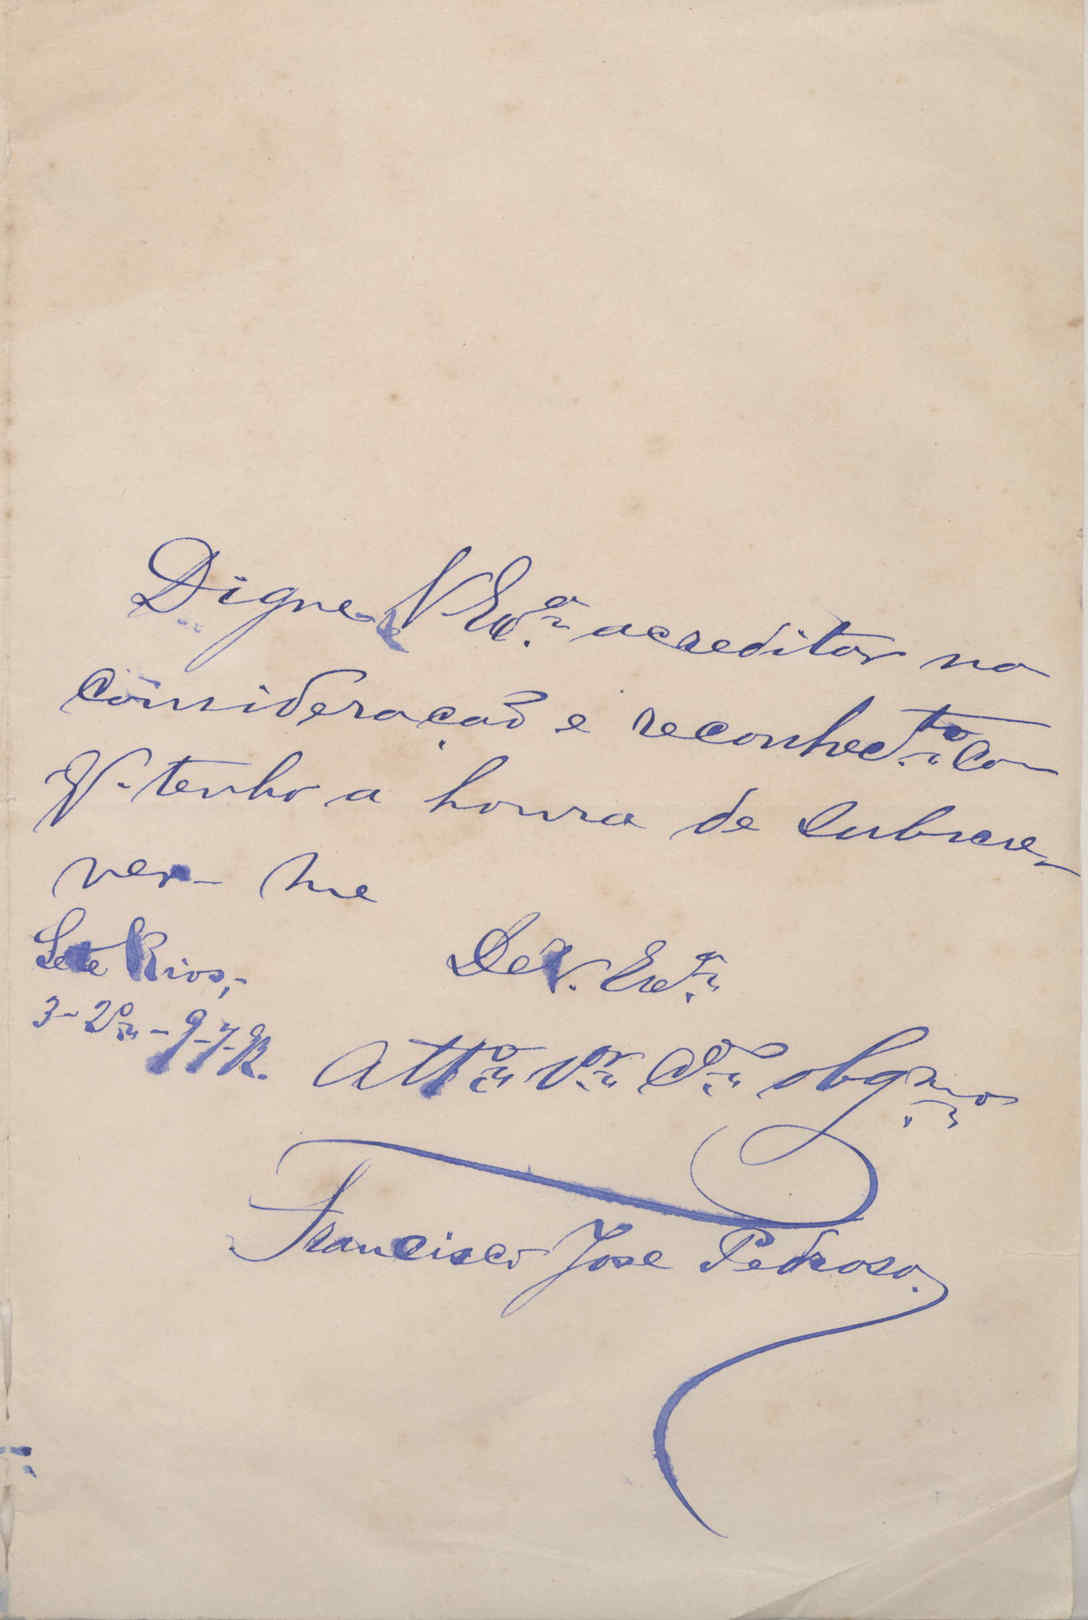 Digne V. Exª. acreditar na
consideração e reconhecto. con
q. tenho a honra de subscre-
ver-me
De V. Exª.
Sete Rios,
3-2º-
Attº. Vor. Cdo. obgmo.
Francisco Jose Pedroso.